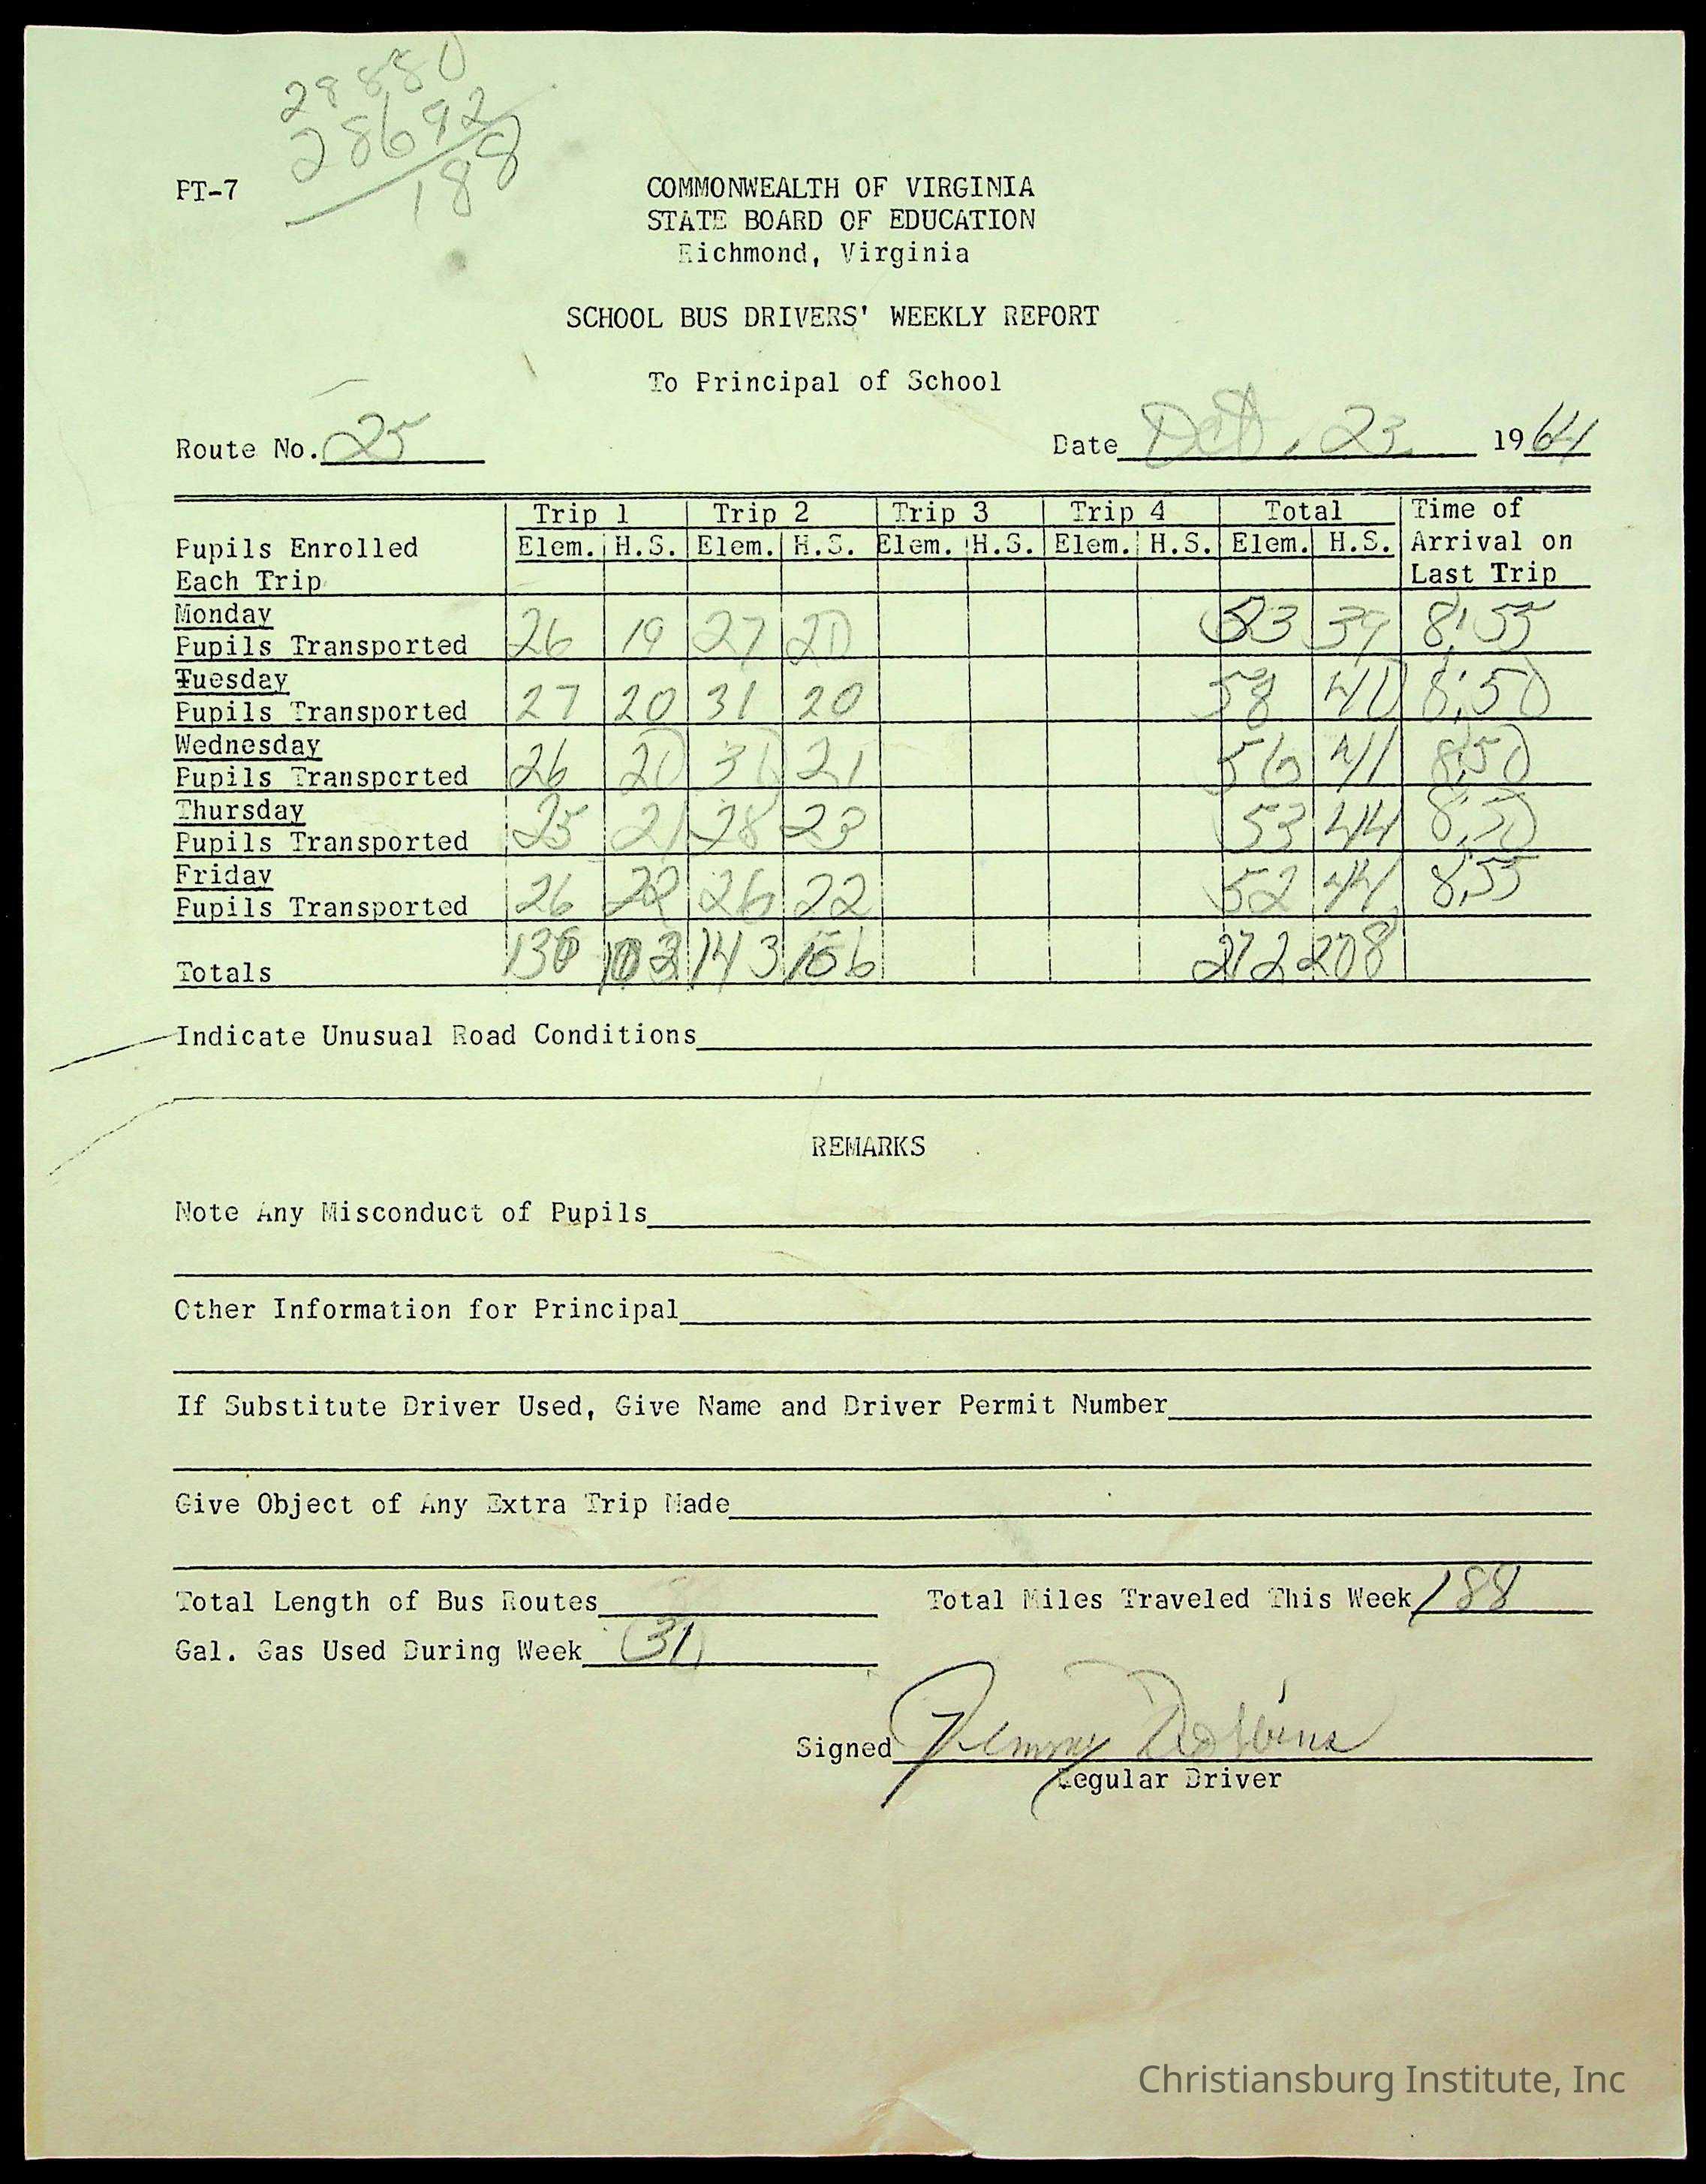 28880
28692
188
PT-7
COMMONWEALTH OF VIRGINIA
STATE BOARD OF EDUCATION
Richmond, Virginia
SCHOOL BUS DRIVERS' WEEKLY REPORT
To Principal of School
Route No. 25 Date Oct. 23 1964
Trip 1 Trip 2 Trip 3 Trip 4 Total Time of
Pupils Enrolled Elem. H.S. Elem. H.S. Elem. H.S. Elem. H.S. Elem. H.S. Arrival on
Each Trip Last Trip
Monday
Pupils Transported 26 19 27 20 53 39 8:55
Tuesday
Pupils Transported 27 20 31 20 58 40 8:50
Wednesday
Pupils Transported 26 20 30 21 56 41 8:50
Thursday
Pupils Transported 25 21 28 23 53 44 8:50
Friday
Pupils Transported 26 22 26 22 52 44 8:55
Totals 130 103 143 106 272 208
Indicate Unusual Road Conditions
REMARKS
Note Any Misconduct of Pupils
Other Information for Principal
If Substitute Driver Used, Give Name and Driver Permit Number
Give Object of Any Extra Trip Made
Total Length of Bus Routes Total Miles Traveled This Week 188
Gal. Gas Used During Week 31
Signed
Regular Driver
Christiansburg Institute, Inc